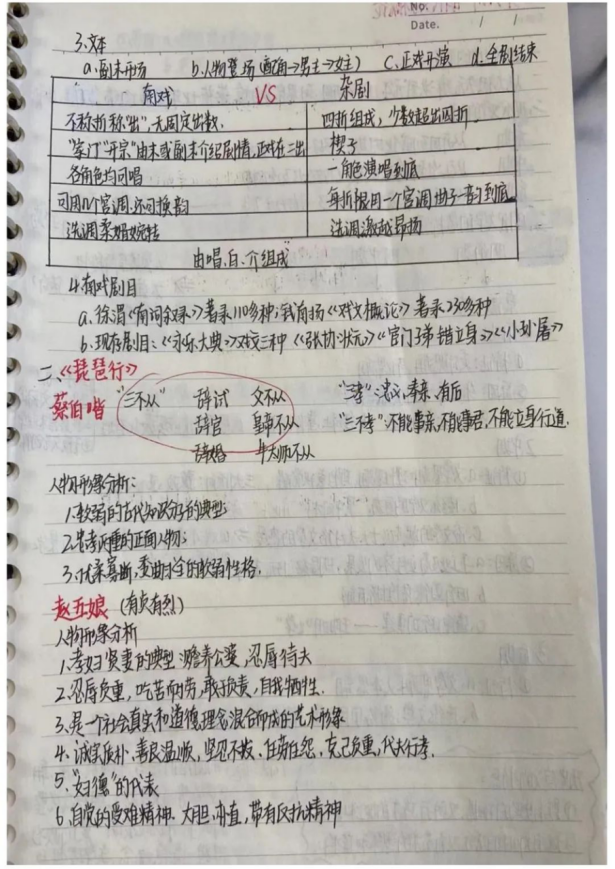 No.
Date. / /
3.文本
a.副末开场 b.人物登场(配角→男主→女主) c.正戏开演 d.全剧结束
南戏 VS 杂剧
不称折称"出",无固定出数. 四折组成,少数超出四折
"家门""开宗"由末或副末介绍剧情,正戏在二出 楔子
各角色均可唱 一角色演唱到底
可用几个宫调,还可换韵 每折限用一个宫调,曲子一韵到底
洗调柔婚婉转 洗调激越昂扬
由唱、白、介组成
4.南戏剧目
a.徐渭《南词叙录》著录110多种;钱南扬《戏文概论》著录230多种
b.现存剧目:《永乐大典》戏文三种《张协状元》《宦门子弟错立身》《小孙屠》
二、《琵琶行》
蔡伯喈 "三不从" 辞试 父不从 "三孝":忠义、奉亲、有后
辞官 皇帝不从 "三不孝":不能事亲,不能事君,不能立身行道.
辞婚 牛太师不从
人物形象分析:
1.软弱的古代知识分子的典型
2.忠孝两重的正面人物;
3.优柔寡断,委曲求全的软弱性格.
赵五娘 (有贞有烈)
人物形象分析
1.孝妇贤妻的典型:赡养公婆,忍辱待夫
2.忍辱负重,吃苦而劳,敢于负责,自我牺牲.
3.是一个社会真实和道德理念混合而成的艺术形象
4.诚实质朴、善良温顺,坚忍不拔、任劳任怨,克己负重,代夫行孝.
5."妇德"的代表
6.自觉的受难精神.大胆、耿直,带有反抗精神